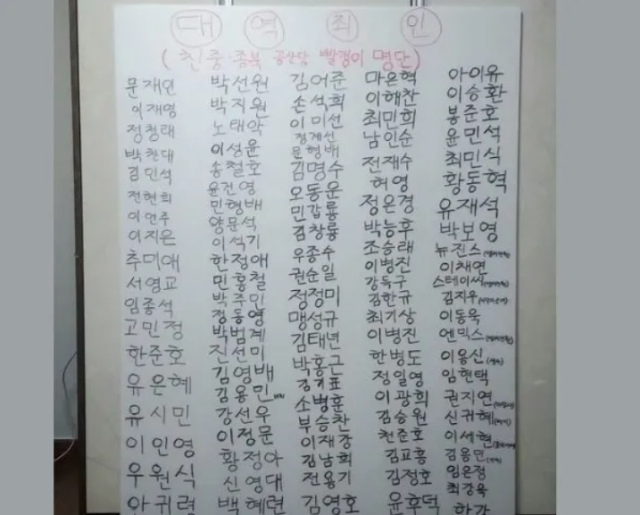 대 역 죄 인
( 친중·종북 공산당 빨갱이 명단)
문재인 박선원 김어준 마은혁 아이유
이재명 박지원 손석희 이해찬 이승환
정청래 노태악 이미선 최민희 봉준호
박찬대 이성윤 정계선 남인순 윤민석
김민석 송철호 문형배 전재수 최민식
전현희 윤건영 김명수 허영 황동혁
이언주 민형배 오동운 정은경 유재석
이지은 양문석 민갑룡 박능후 박보영
추미애 이석기 김창룡 조승래 뉴진스
서영교 한정애 우종수 이병진 이채연
임종석 민홍철 권순일 강득구 스테이씨
고민정 박주민 정정미 김한규 김지우
한준호 정동영 맹성규 최기상 이동욱
유은혜 박범계 김태년 이병진 엔믹스
유시민 진선미 박홍근 한병도 이용신
이인영 김영배 김기표 정일영 임현택
우원식 김용민 소병훈 이광희 권지연
안귀령 강선우 부승찬 김승원 신귀혜
이정문 이재강 천준호 이세현
황정아 김남희 김교흥 김용민
신영대 전용기 김정호 임은정
백혜련 김영호 윤후덕 최강욱
한강